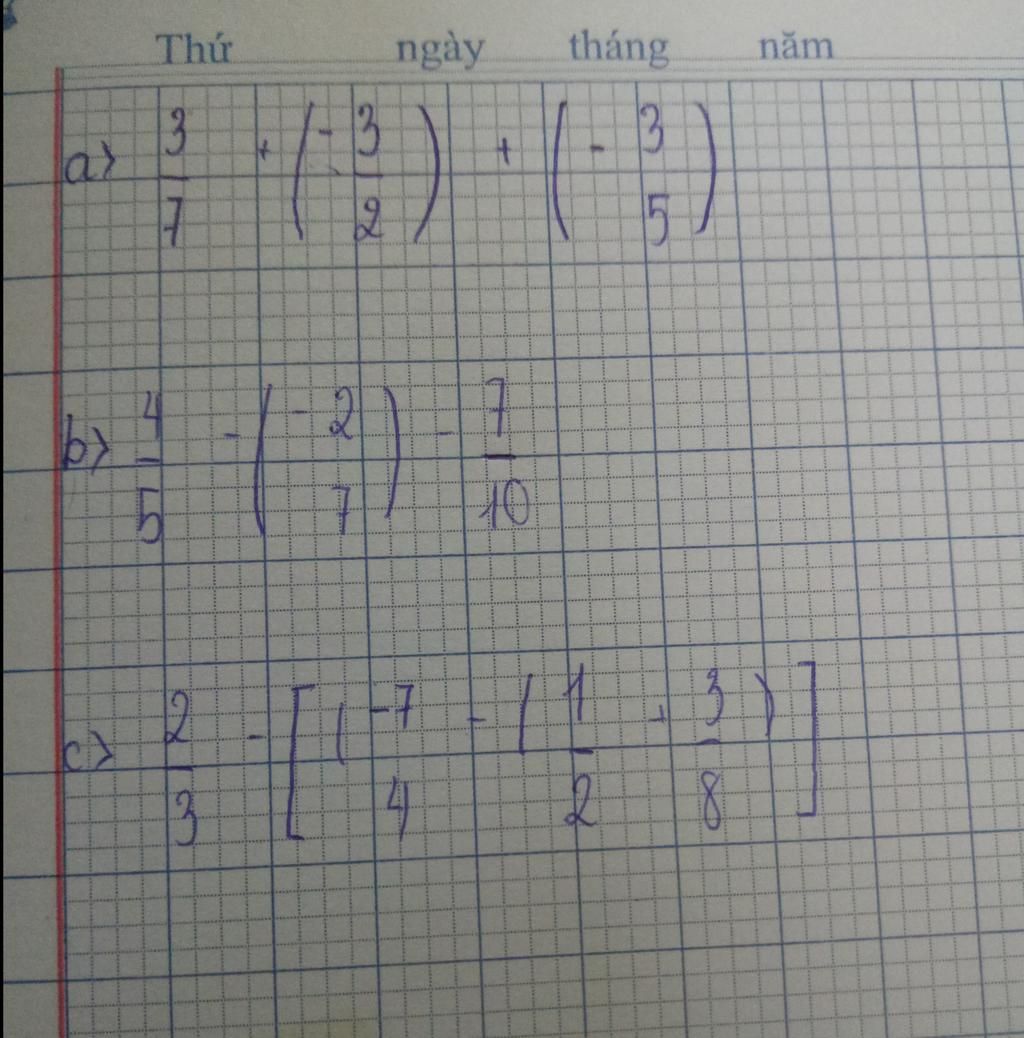 Thứ ngày tháng năm
a> 3/7 + (-3/2) + (-3/5)
b> 4/5 - (-2/7) - 7/10
c> 2/3 - [( -7/4 - (1/2 + 3/8)]